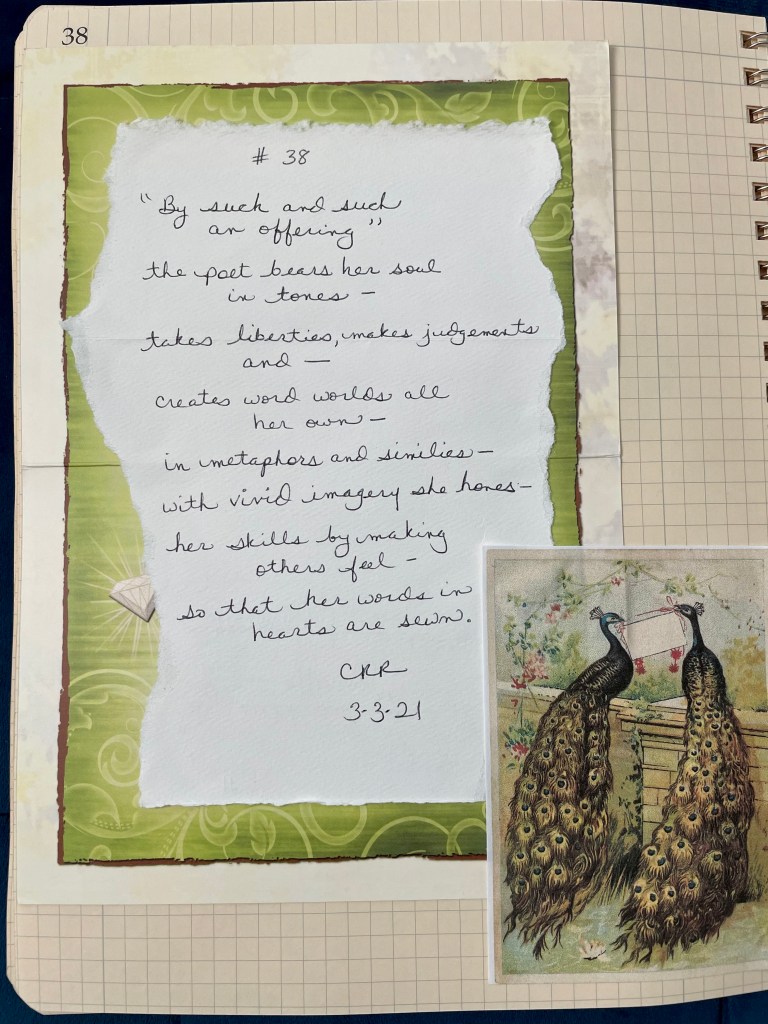 38
# 38
"By such and such
an offering"
the poet bears her soul
in tones —
takes liberties, makes judgements
and —
creates word worlds all
her own —
in metaphors and similies —
with vivid imagery she hones —
her skills by making
others feel —
so that her words in
hearts are sewn.
CRR
3-3-21